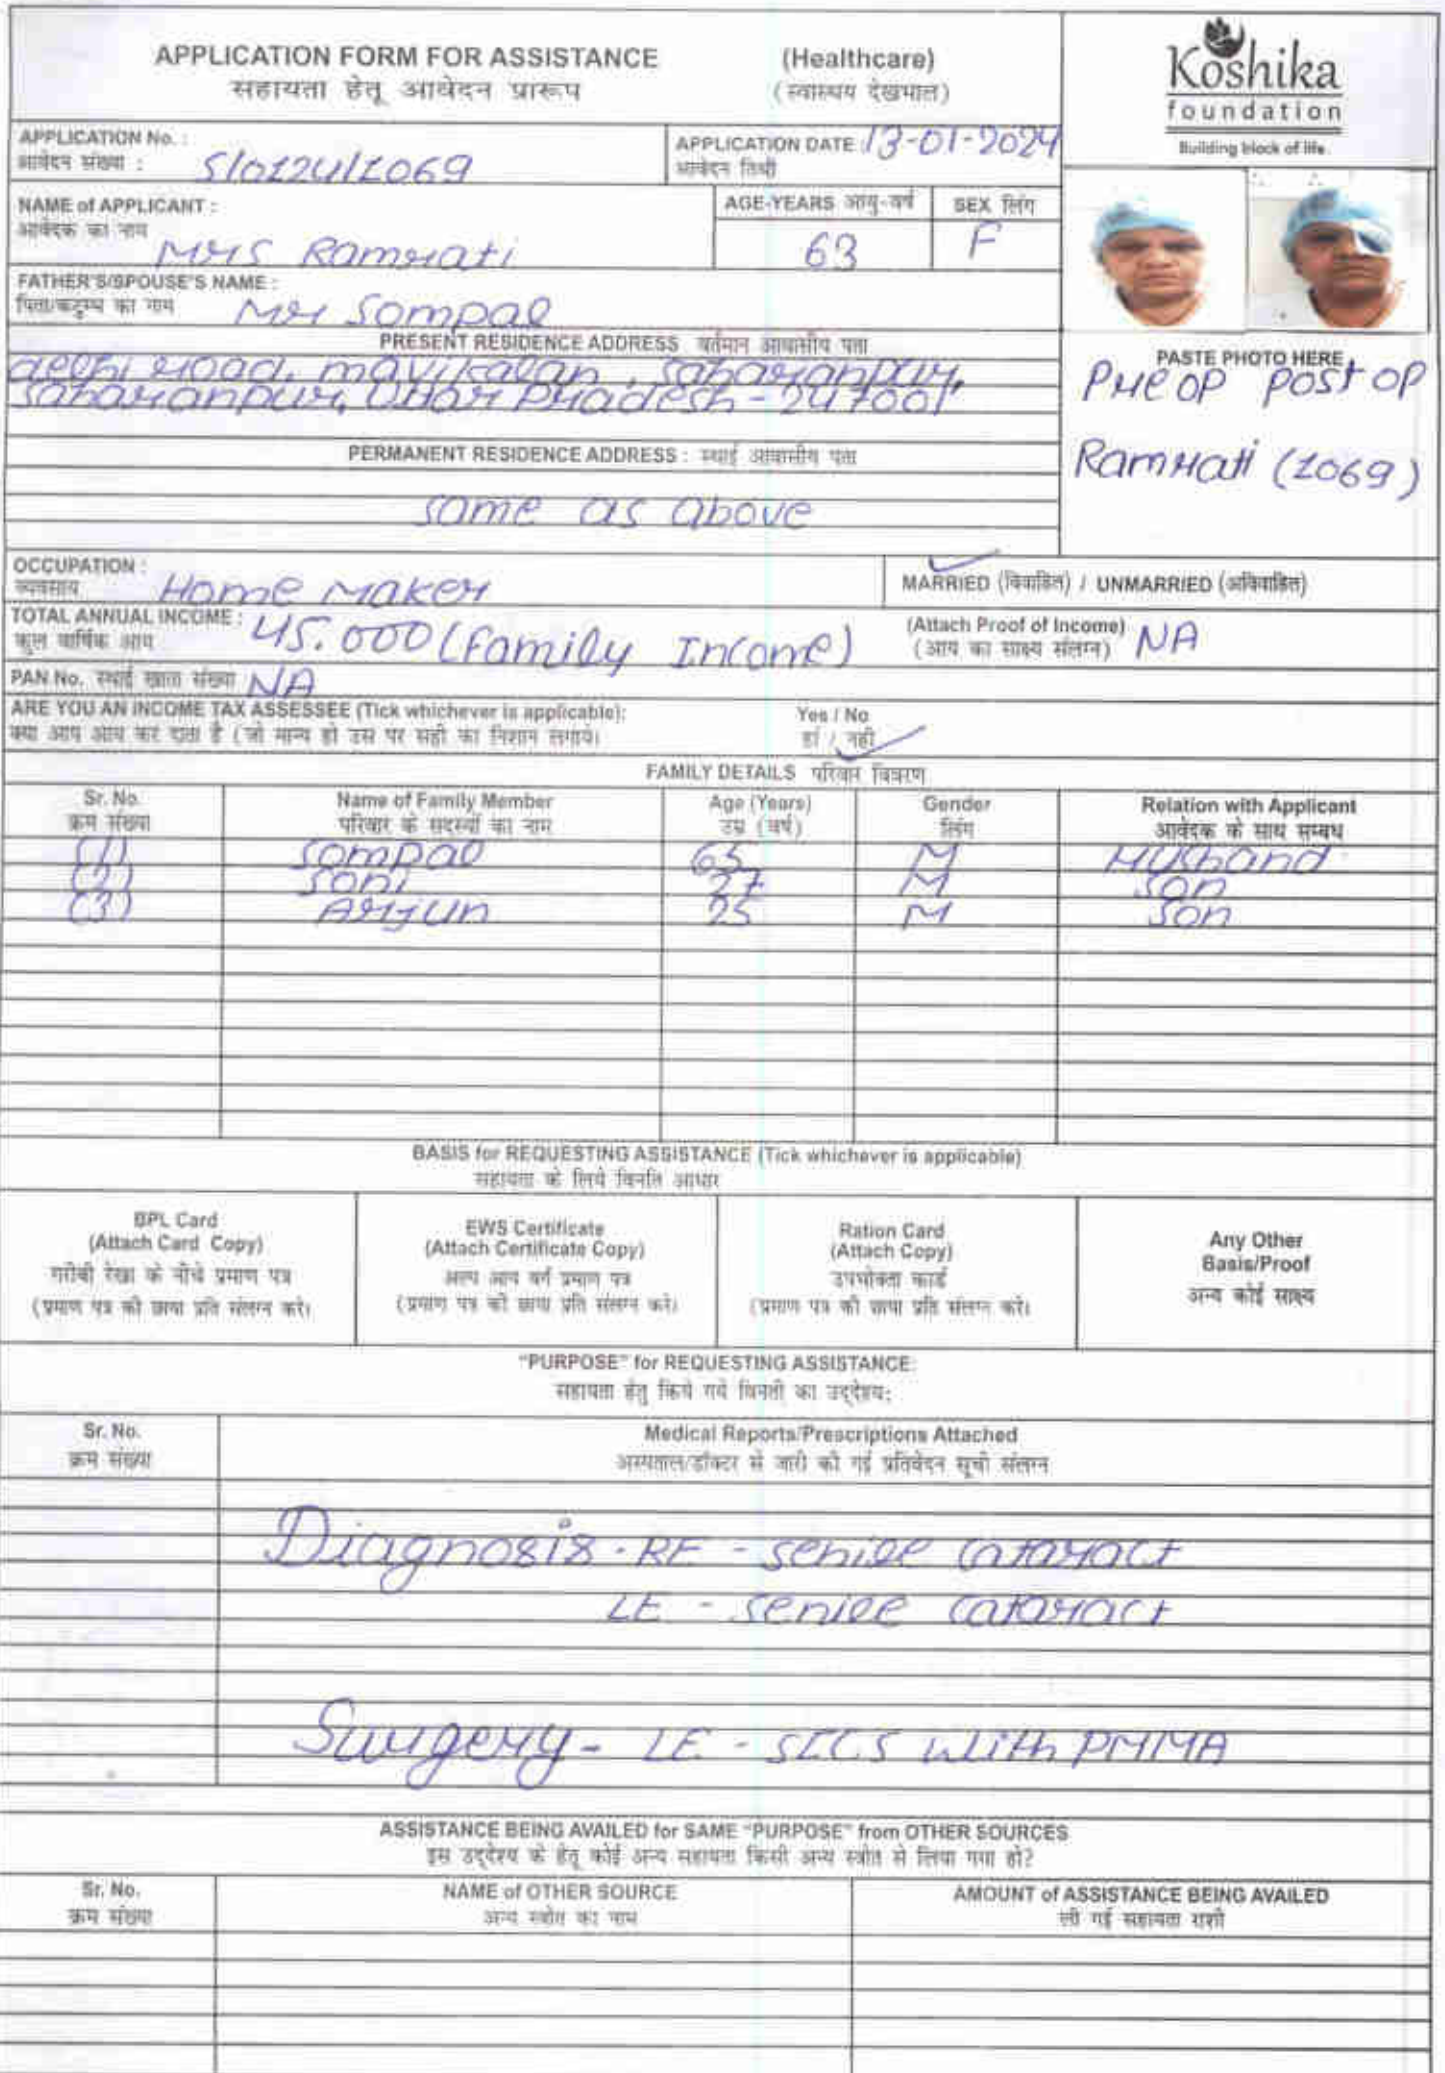 APPLICATION FORM FOR ASSISTANCE (Healthcare)
सहायता हेतू आवेदन प्रारूप (स्वास्थ्य देखभाल)
Koshika
foundation
Building block of life
APPLICATION No. :
आवेदन संख्या : S/0124/1069
APPLICATION DATE 13-01-2024
आवेदन तिथी
NAME of APPLICANT :
आवेदक का नाम Mrs Ramrati
AGE-YEARS आयु-वर्ष 63
SEX लिंग F
FATHER'S/SPOUSE'S NAME :
पिता/कटुम्ब का नाम Mr Sompal
PRESENT RESIDENCE ADDRESS वर्तमान आवासीय पता
delhi road, mavikalan, saharanpur,
saharanpur, Uttar Pradesh - 247001
PASTE PHOTO HERE
Pre op post op
Ramrati (1069)
PERMANENT RESIDENCE ADDRESS : स्थाई आवासीय पता
same as above
OCCUPATION :
व्यवसाय Home Maker
MARRIED (विवाहित) / UNMARRIED (अविवाहित)
TOTAL ANNUAL INCOME :
कुल वार्षिक आय 45.000 (Family Income)
(Attach Proof of Income)
(आय का साक्ष्य संलग्न) NA
PAN No. स्थाई खाता संख्या NA
ARE YOU AN INCOME TAX ASSESSEE (Tick whichever is applicable): Yes / No
क्या आप आय कर दाता है (जो मान्य हो उस पर सही का निशान लगाये। हां / नही
FAMILY DETAILS परिवार विवरण
Sr. No. Name of Family Member Age (Years) Gender Relation with Applicant
क्रम संख्या परिवार के सदस्यों का नाम उम्र (वर्ष) लिंग आवेदक के साथ सम्बध
(1) Sompal 65 M Husband
(2) Soni 27 M Son
(3) Arjun 25 M Son
BASIS for REQUESTING ASSISTANCE (Tick whichever is applicable)
सहायता के लिये विनति आधार
BPL Card
(Attach Card Copy)
गरीबी रेखा के नीचे प्रमाण पत्र
(प्रमाण पत्र की छाया प्रति संलग्न करे।
EWS Certificate
(Attach Certificate Copy)
अल्प आय वर्ग प्रमाण पत्र
(प्रमाण पत्र की छाया प्रति संलग्न करे।
Ration Card
(Attach Copy)
उपभोक्ता कार्ड
(प्रमाण पत्र की छाया प्रति संलग्न करे।
Any Other
Basis/Proof
अन्य कोई साक्ष्य
"PURPOSE" for REQUESTING ASSISTANCE:
सहायता हेतु किये गये विनती का उद्देश्य:
Sr. No. Medical Reports/Prescriptions Attached
क्रम संख्या अस्पताल/डॉक्टर से जारी की गई प्रतिवेदन सूची संलग्न
Diagnosis - RE - senile cataract
LE - senile cataract
Surgery - LE - SICS with PMMA
ASSISTANCE BEING AVAILED for SAME "PURPOSE" from OTHER SOURCES
इस उद्देश्य के हेतू कोई अन्य सहायता किसी अन्य स्त्रोत से लिया गया हो?
Sr. No. NAME of OTHER SOURCE AMOUNT of ASSISTANCE BEING AVAILED
क्रम संख्या अन्य स्त्रोत का नाम ली गई सहायता राशी